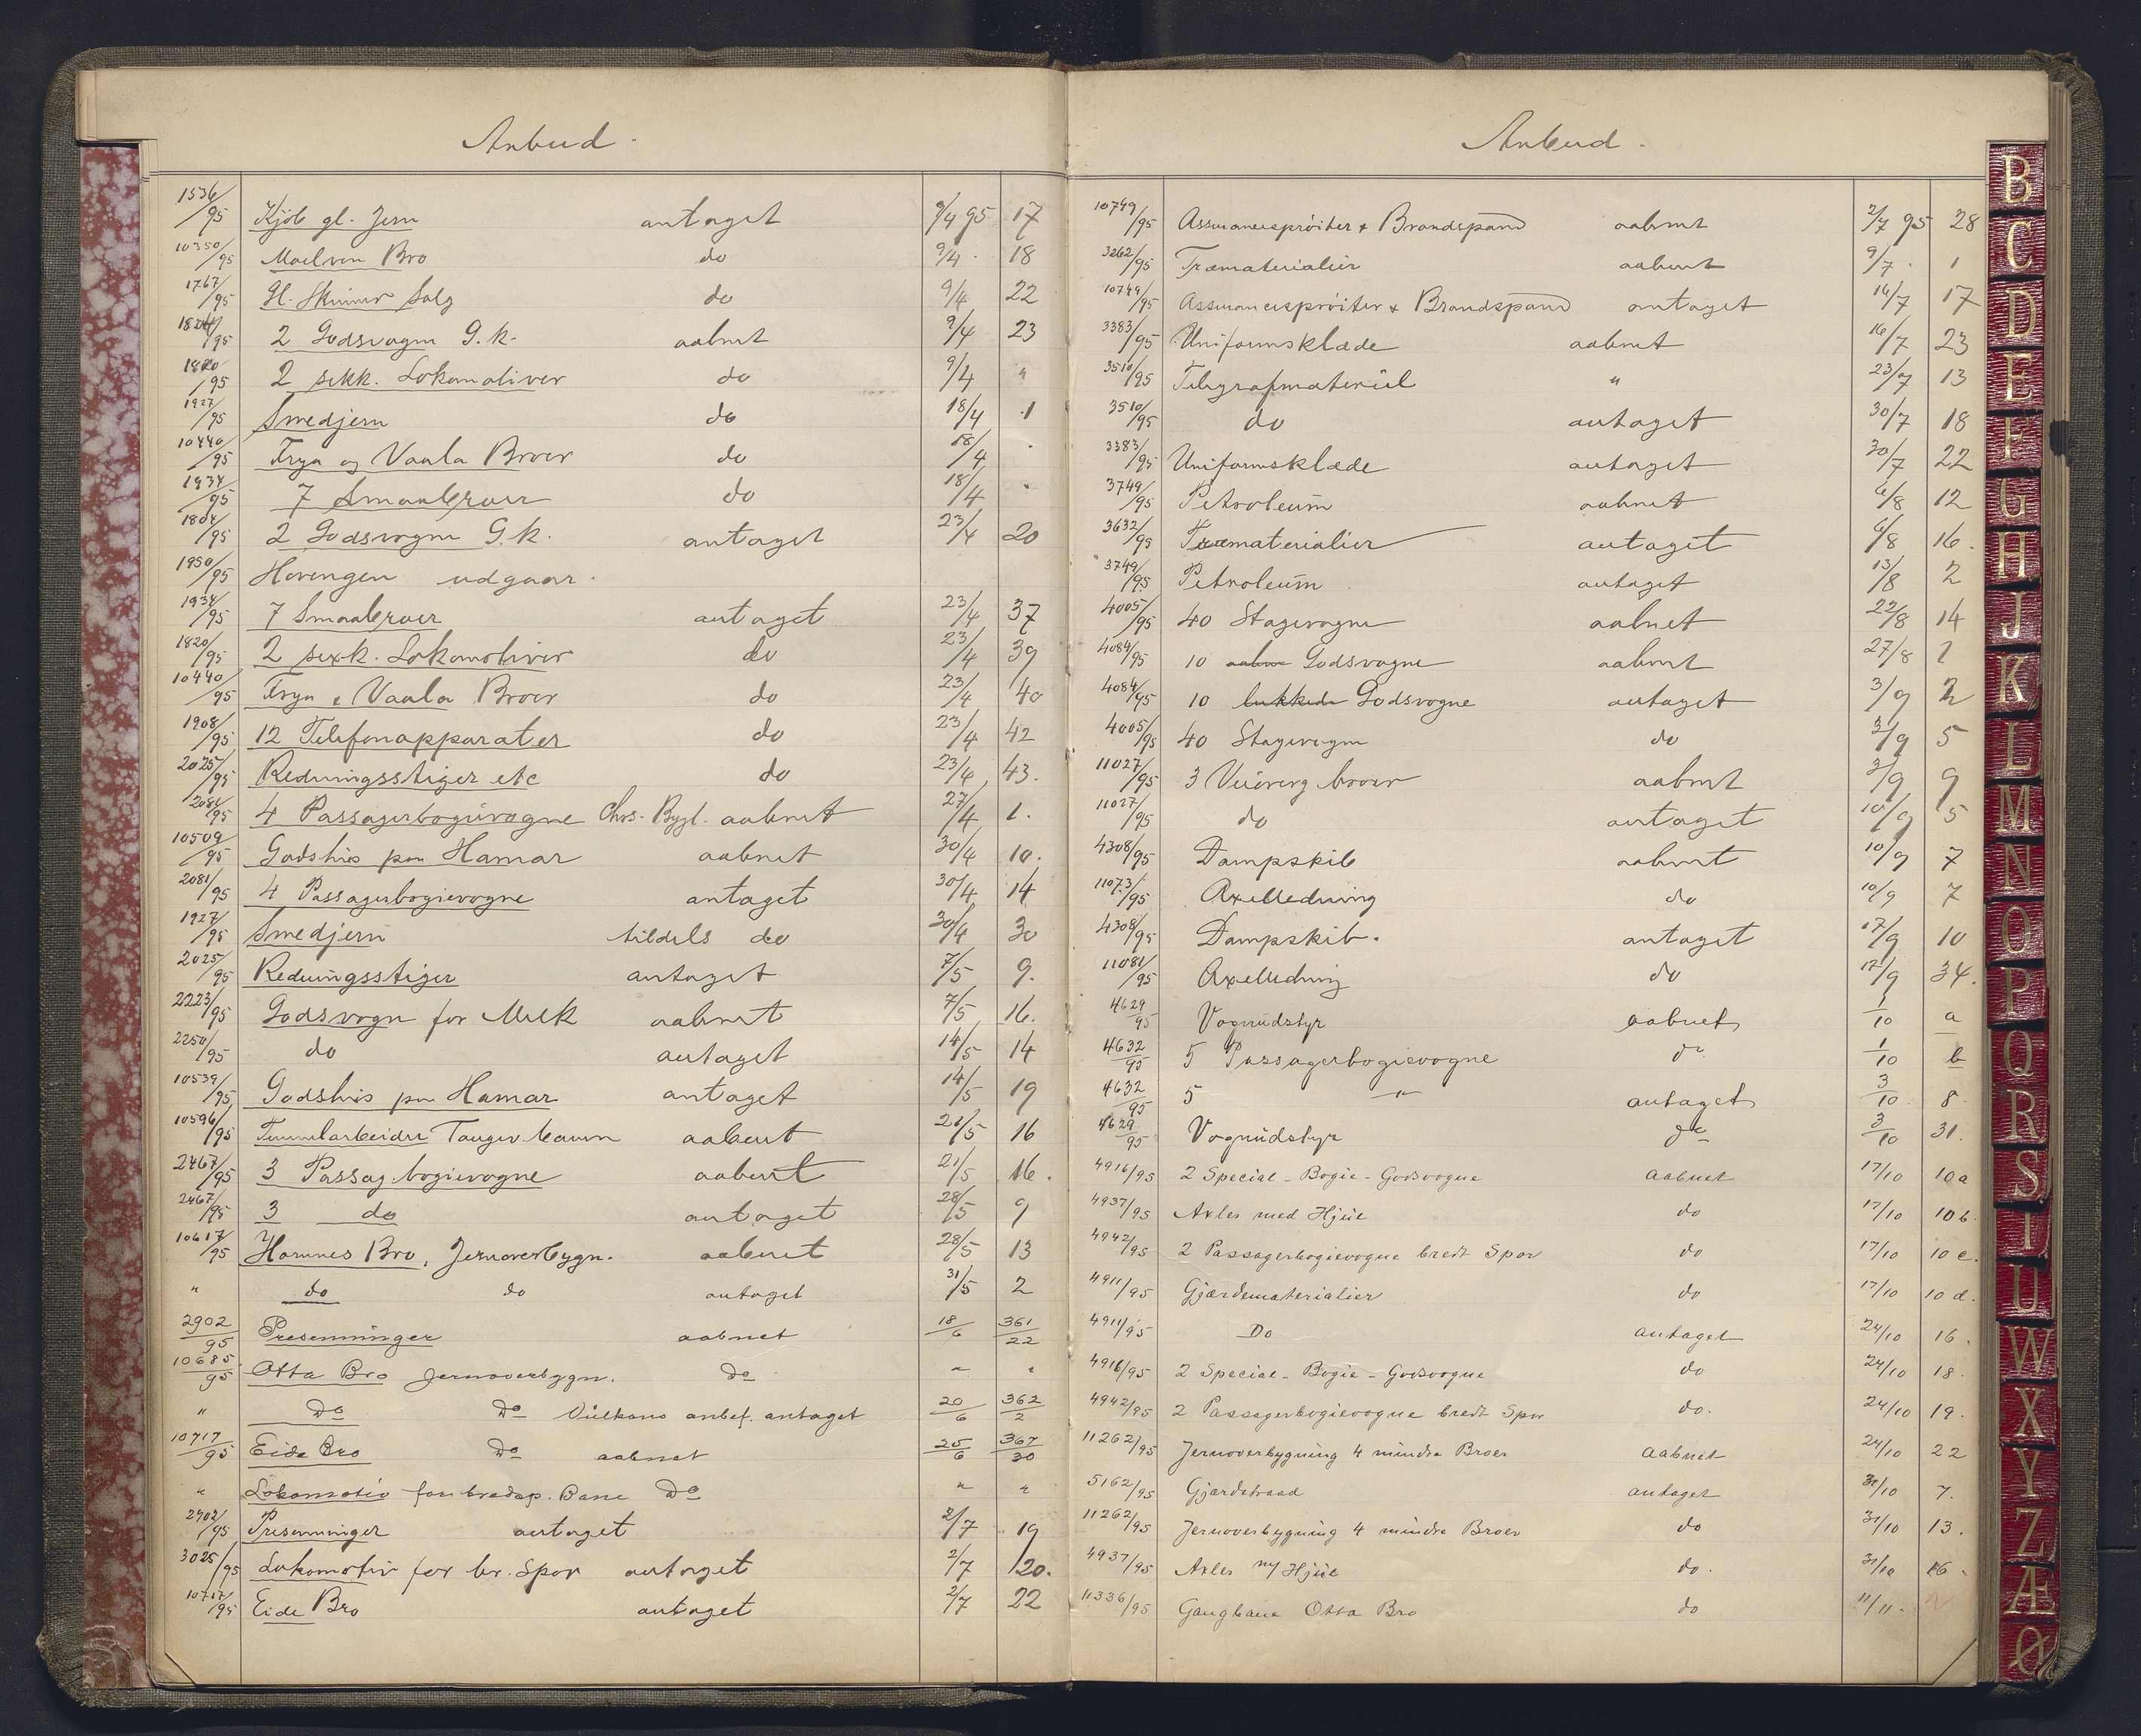 Anbud.
1536/95 Kjöb gl. Jern antaget 9/4 95 17
10350/95 Moelven Bro do 9/4 18
1767/95 Gl. Skinner Salg do 9/4 22
1804/95 2 Godsvogne G.k. aabnet 9/4 23
1820/95 2 sexk. Lokomotiver do 9/4 "
1927/95 Smedjern do 18/4 1
10440/95 Frya og Vaala Broer do 18/4 "
1934/95 7 Smaabroer do 18/4 "
1804/95 2 Godsvogne G.k. antaget 23/4 20
1950/95 Horengen udgaar.
1934/95 7 Smaabroer antaget 23/4 37
1820/95 2 sexk. Lokomotiver do 23/4 39
10440/95 Frya & Vaala Broer do 23/4 40
1908/95 12 Telefonapparater do 23/4 42
2025/95 Redningsstiger etc do 23/4 43.
2081/95 4 Passagerbogievogne Chrs-Bygl. aabnet 27/4 1.
10509/95 Godshus paa Hamar aabnet 30/4 10.
2081/95 4 Passagerbogievogne antaget 30/4 14
1927/95 Smedjern tildels do 30/4 30
2025/95 Redningsstiger antaget 7/5 9.
2223/95 Godsvogn for Melk aabnet 7/5 16.
2250/95 do antaget 14/5 14
10539/95 Godshus paa Hamar antaget 14/5 19
10596/95 Tunnelarbeider Tangev. aabent 21/5 16
2467/95 3 Passag.bogievogne aabent 21/5 16.
2467/95 3 do antaget 28/5 9
10617/95 Hornnes Bro, Jernoverbygn. aabnet 28/5 13
" do do antaget 31/5 2
2902/95 Presenninger aabnet 18/6 361/22
10685/95 Otta Bro Jernoverbygn. do " "
" Do Do Vulkans anbef. antaget 20/6 362/2
10717/95 Eide Bro Do aabnet 25/6 367/30
" Lokomotiv for bredsp. Bane Do " "
2902/95 Presenninger antaget 2/7 19
3025/95 Lokomotiv for br. Spor antaget 2/7 20.
10717/95 Eide Bro antaget 2/7 22
Anbud.
10749/95 Assurancesprøiter & Brandspand aabnet 2/7 95 28
3262/95 Træmaterialier aabnet 9/7 1
10749/95 Assurancesprøiter & Brandspand antaget 16/7 17
3383/95 Uniformsklæde aabnet 16/7 23
3510/95 Telegrafmateriel " 23/7 13
3510/95 do antaget 30/7 18
3383/95 Uniformsklæde antaget 30/7 22
3749/95 Petroleum aabnet 6/8 12
3632/95 Træmaterialier antaget 6/8 16.
3749/95 Petroleum antaget 13/8 2
4005/95 40 Stagevogne aabnet 22/8 14
4084/95 10 aabne Godsvogne aabnet 27/8 1
4084/95 10 lukkede Godsvogne antaget 3/9 2
4005/95 40 Stagevogne do 3/9 5
11027/95 3 broer aabnet 3/9 9
11027/95 do antaget 10/9 5
4308/95 Dampskib aabnet 10/9 7
11073/95 Axelledning do 10/9 7
4308/95 Dampskib. antaget 17/9 10
11081/95 Axelledning do 17/9 34.
4629/95 Vognudstyr aabnet 1/10 a
4632/95 5 Passagerbogievogne do 1/10 b
4632/95 5 " antaget 3/10 8
4629/95 Vognudstyr do 3/10 31.
4916/95 2 Special-Bogie-Godsvogne aabnet 17/10 10a
4937/95 Axler med Hjul do 17/10 10b.
4942/95 2 Passagerbogievogne bredt Spor do 17/10 10c.
4911/95 Gjærdematerialier do 17/10 10d.
4911/95 Do antaget 24/10 16.
4916/95 2 Special-Bogie-Godsvogne do 24/10 18.
4942/95 2 Passagerbogievogne bredt Spor do. 24/10 19.
11262/95 Jernoverbygning 4 mindre Broer aabnet 24/10 22
5162/95 Gjærdetraad antaget 31/10 7.
11262/95 Jernoverbygning 4 mindre Broer do 31/10 13.
4937/95 Axler m/ Hjul do. 31/10 16.
11336/95 Gangbane Otta Bro do 11/11
B
C
D
E
F
G
H
J
K
L
M
N
O
P
Q
R
S
T
U
W
X
Y
Z
Æ
Ø